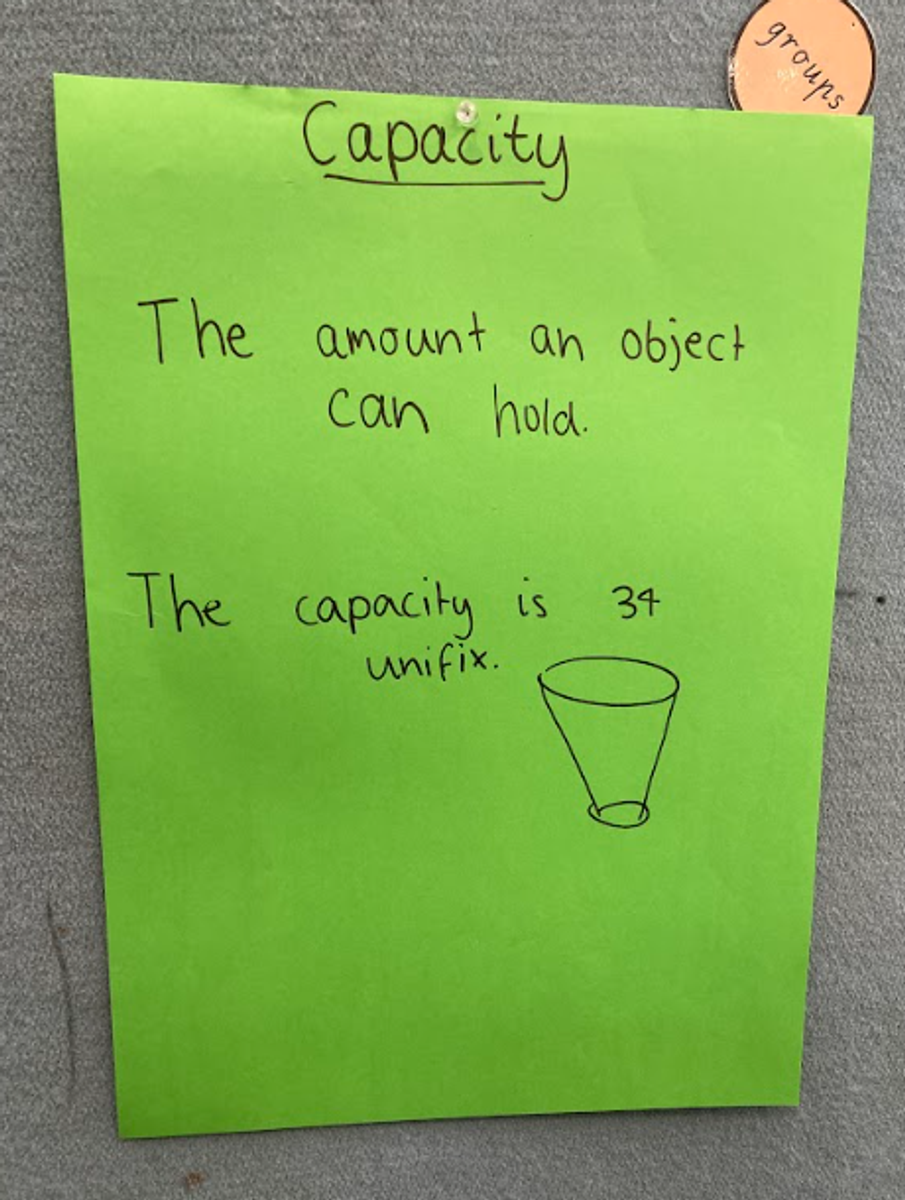 groups
Capacity
The amount an object
can hold.
The capacity is 34
unifix.